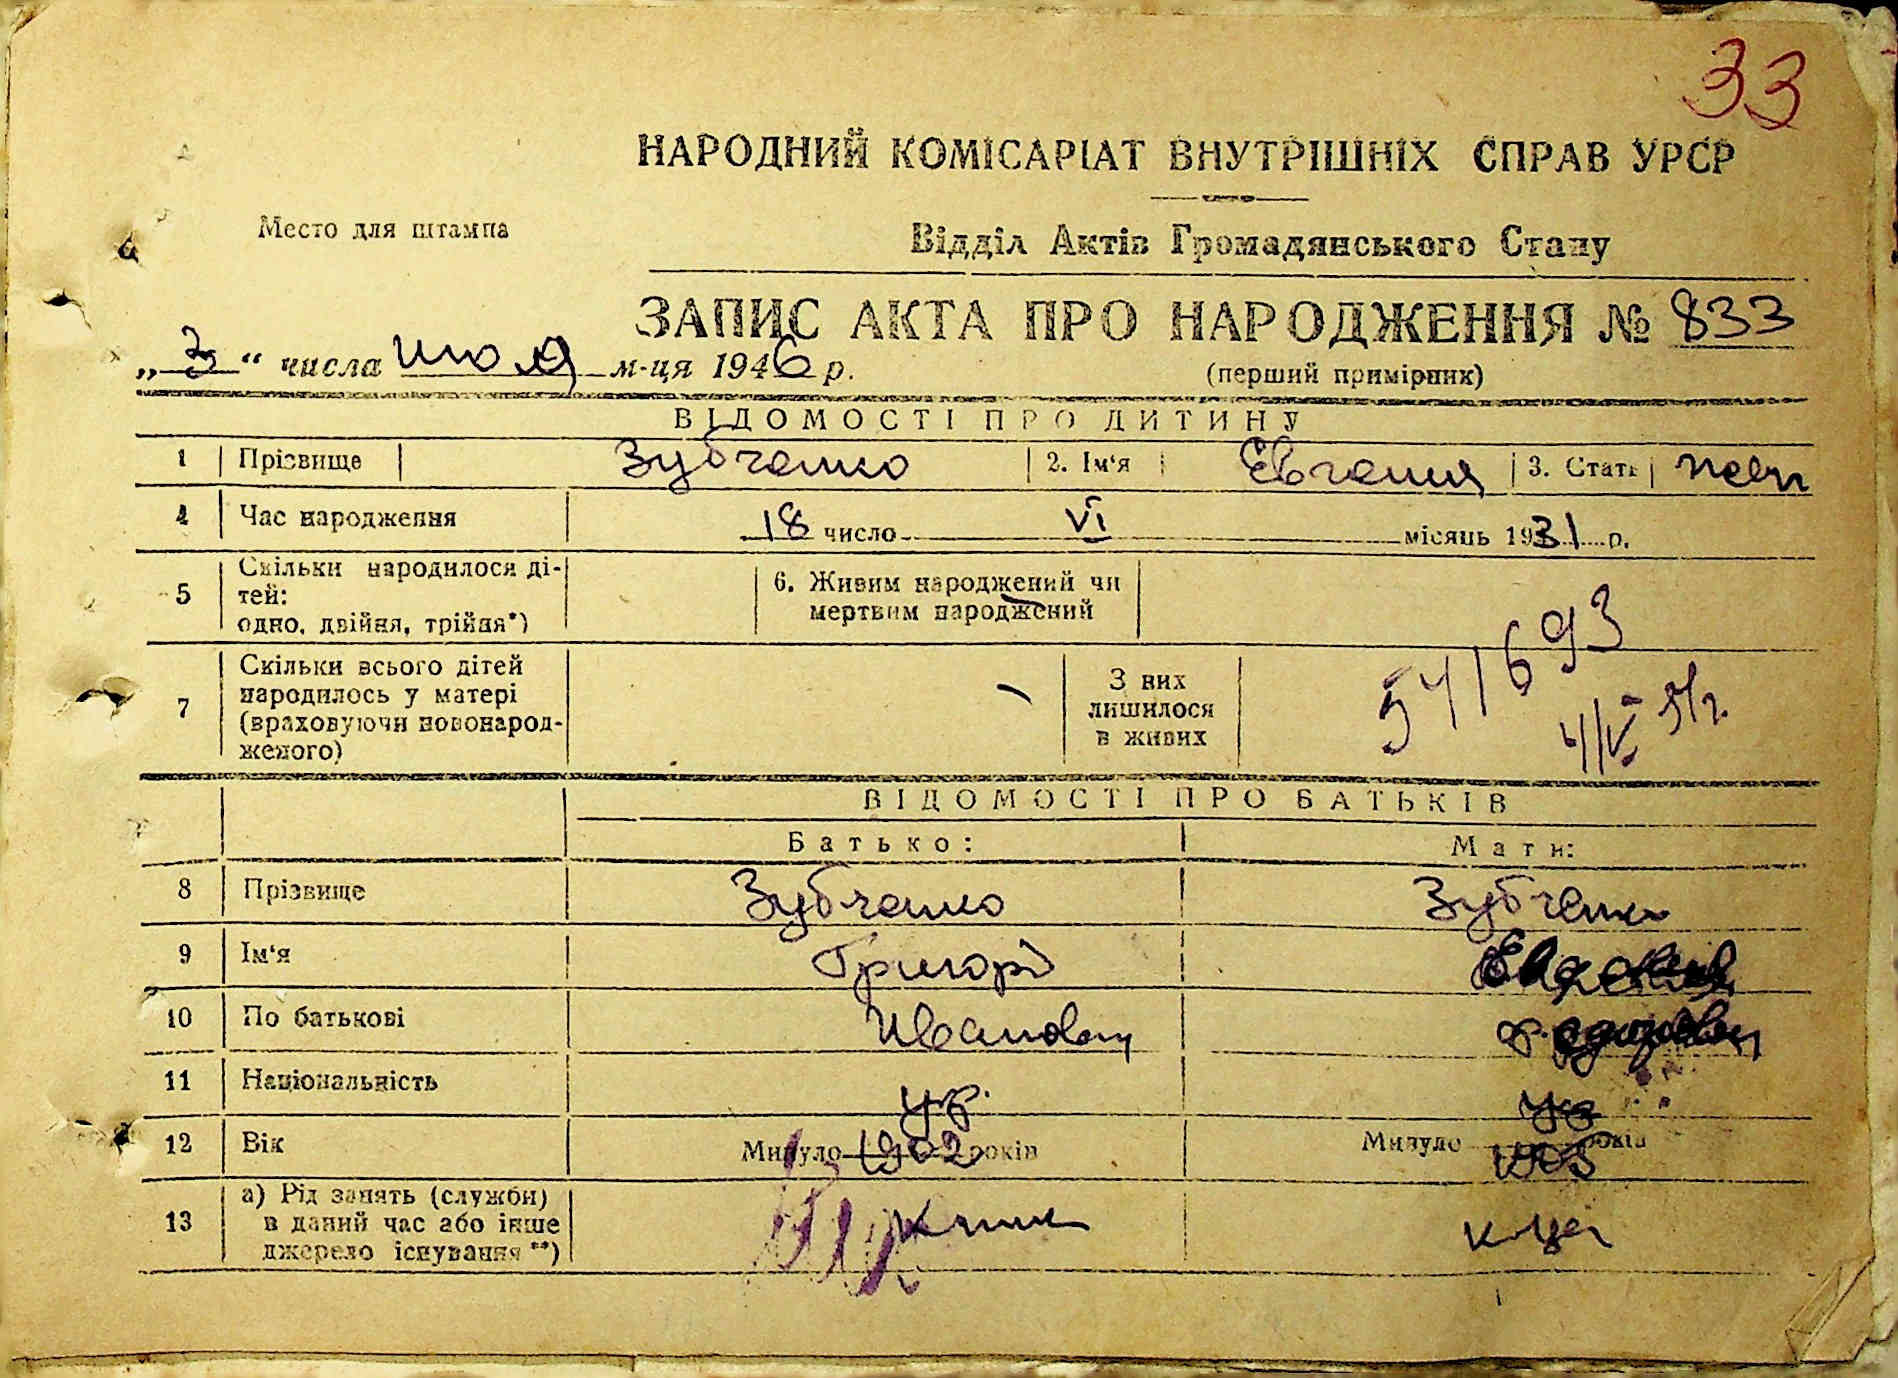 33
НАРОДНИЙ КОМІСАРІАТ ВНУТРІШНІХ СПРАВ УРСР
Место для штампа
Відділ Актів Громадянського Стану
ЗАПИС АКТА ПРО НАРОДЖЕННЯ № 833
„3“ числа июля м-ця 1946 р.
(перший примірник)
ВІДОМОСТІ ПРО ДИТИНУ
1 Прізвище Зубченко 2. Ім'я Евгения 3. Стать жен
4 Час народження 18 число VI місяць 1931 р.
5 Скільки народилося ді-
тей:
одно, двійня, трійня*)
6. Живим народжений чи
мертвим народжений
7 Скільки всього дітей
народилось у матері
(враховуючи новонарод-
женого)
З них
лишилося
в живих
541693
4/V 51г.
ВІДОМОСТІ ПРО БАТЬКІВ
Батько: Мати:
8 Прізвище Зубченко Зубченко
9 Ім'я Григорій
10 По батькові Иванович
11 Національність укр. укр
12 Вік Минуло 1902 років Минуло 1905 років
13 а) Рід занять (служби)
в даний час або інше
джерело існування **)